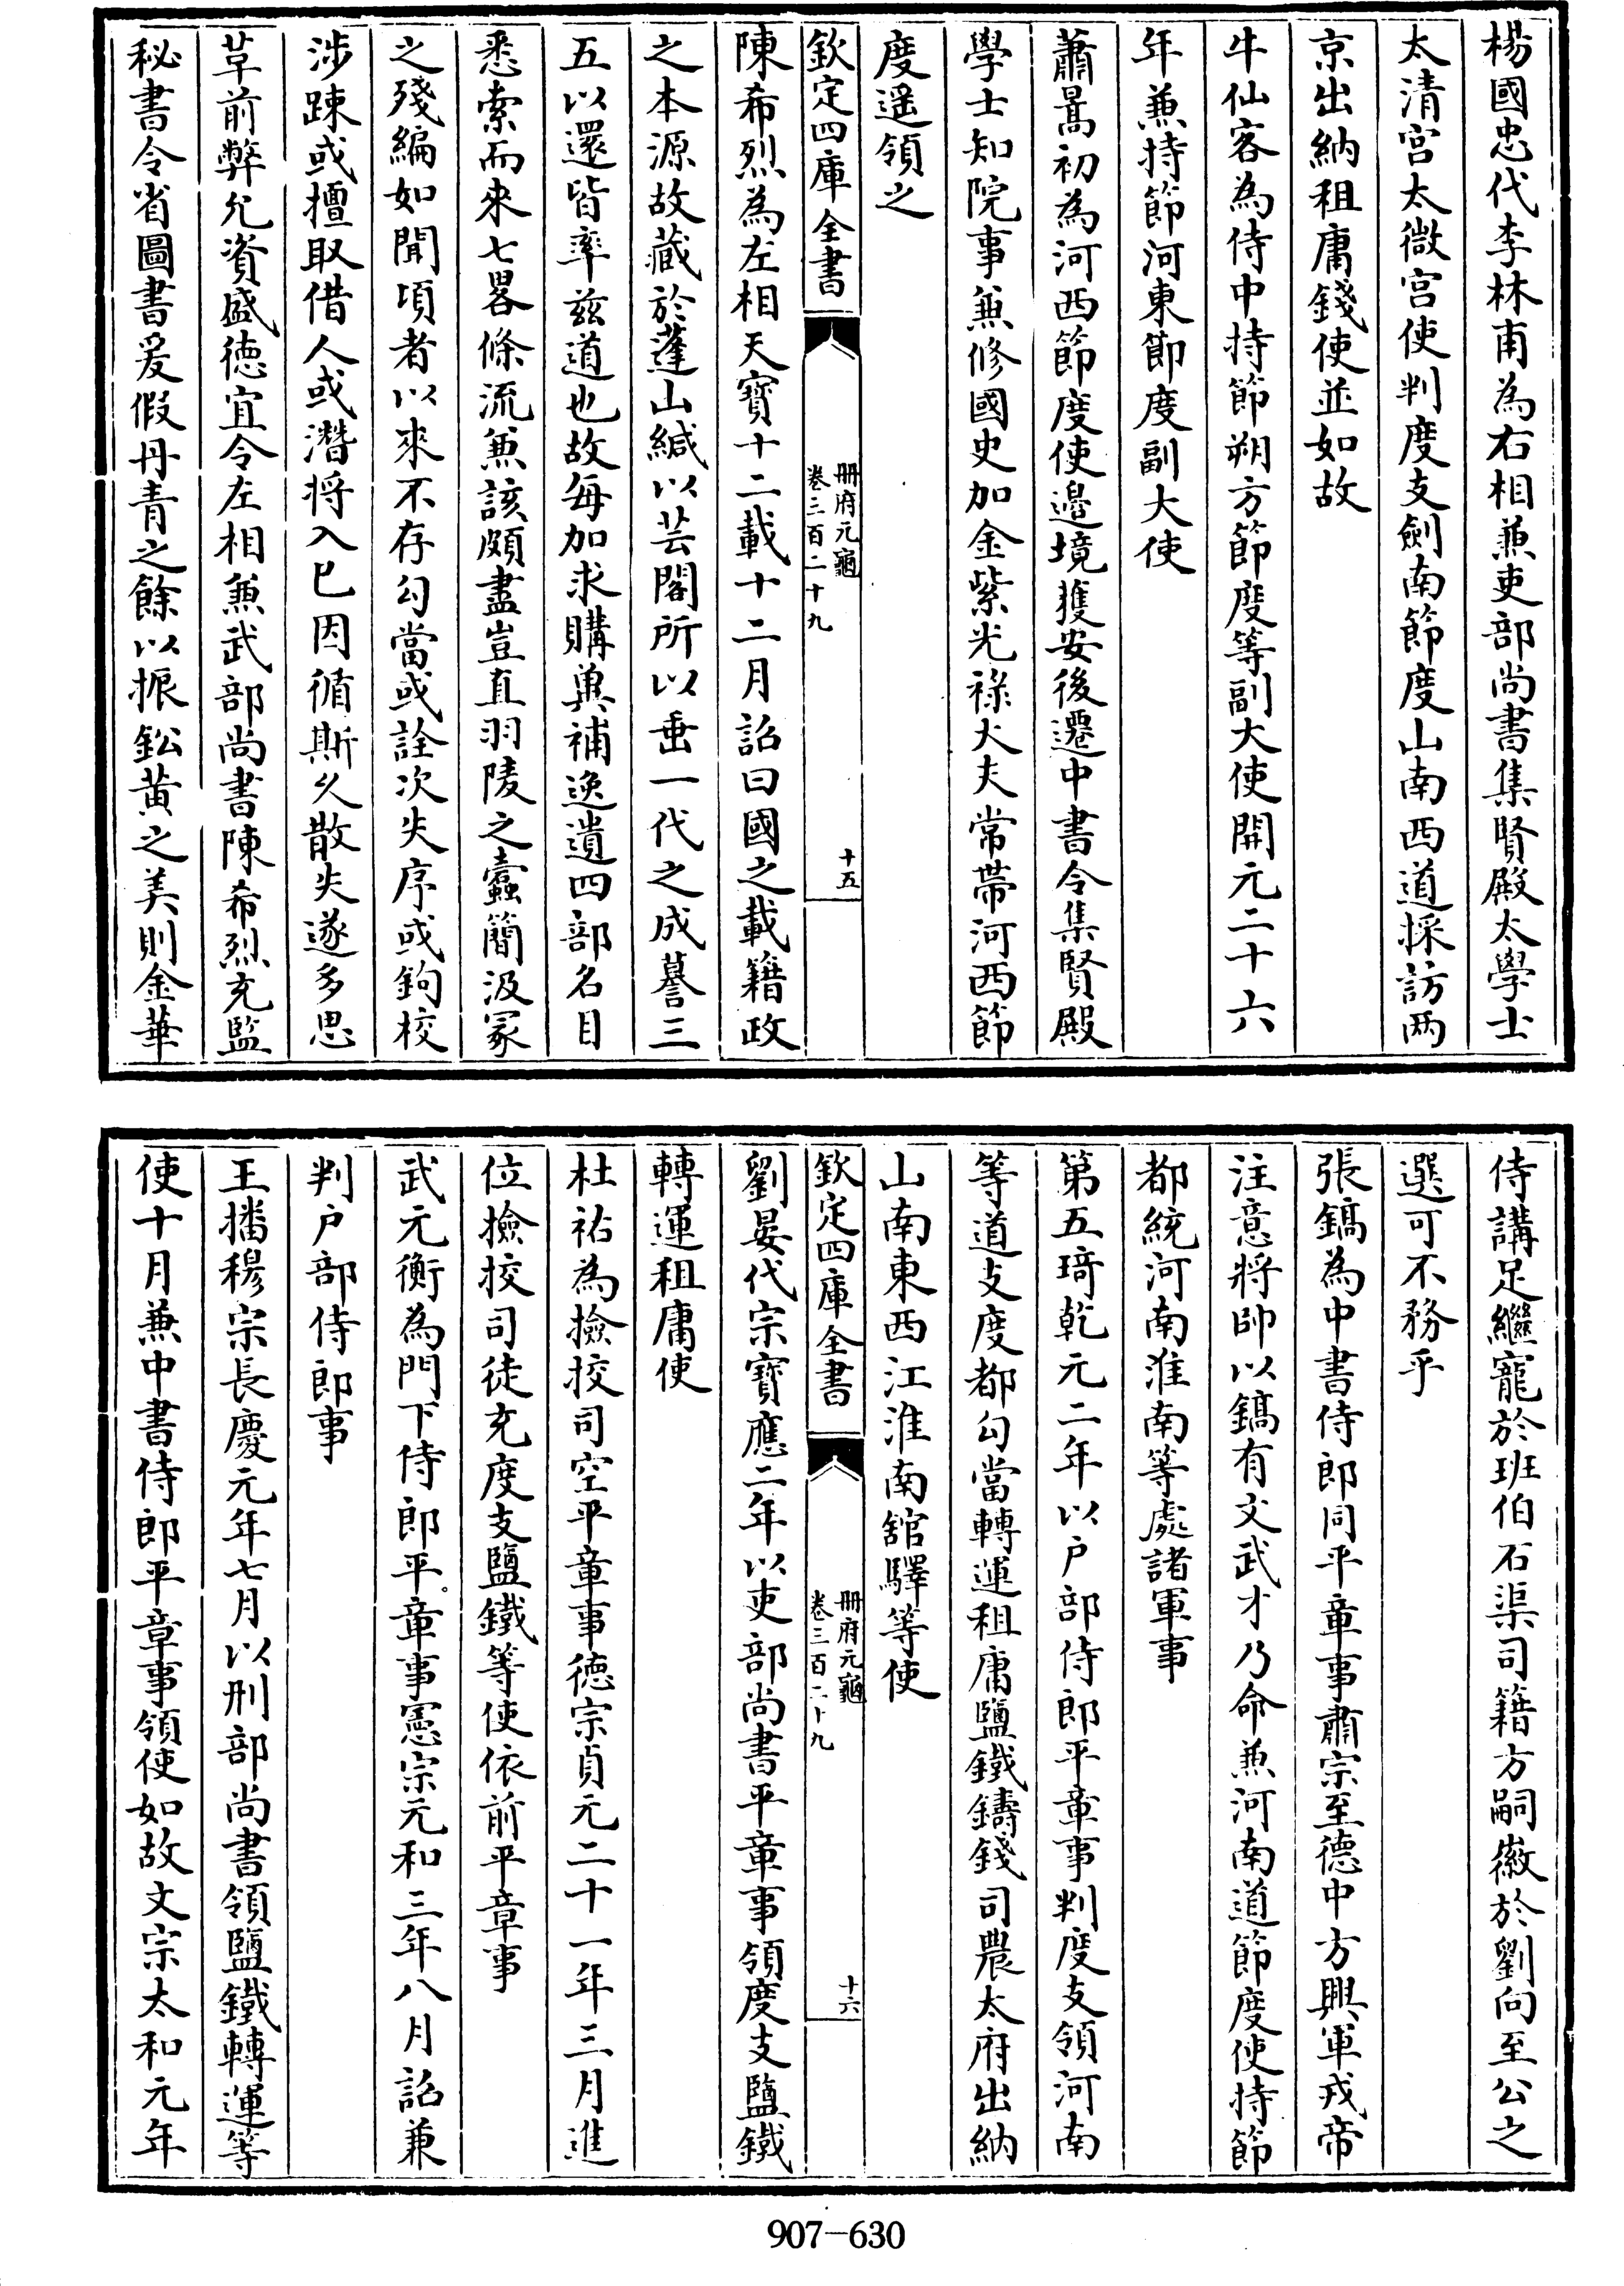 楊國忠代李林甫為右相兼吏部尚書集賢殿太學士
太清宫太微宫使判度支劍南節度山南西道採訪两
京出納租庸錢使並如故
牛仙客為侍中持節朔方節度等副大使開元二十六
年兼持節河東節度副大使
蕭暠初為河西節度使邊境獲安後遷中書令集賢殿
學士知院事兼修國史加金紫光祿大夫常帶河西節
度遥領之
欽定四庫全書
冊府元龜
卷三百二十九
十五
陳希烈為左相天寶十二載十二月詔曰國之載籍政
之本源故藏於蓬山緘以芸閣所以垂一代之成謩三
五以還皆率兹道也故每加求購兾補逸遺四部名目
悉索而來七畧條流兼該頗盡豈直羽陵之蠧簡汲冢
之殘編如聞頃者以來不存勾當或詮次失序或鉤校
涉踈或擅取借人或潛將入已因循斯久散失遂多思
革前弊允資盛德宜令左相兼武部尚書陳希烈充監
秘書令省圖書爰假丹青之餘以振鈆黄之美則金華
侍講足繼寵於班伯石渠司籍方嗣徽於劉向至公之
選可不務乎
張鎬為中書侍郎同平章事肅宗至德中方興軍戎帝
注意將帥以鎬有文武才乃命兼河南道節度使持節
都統河南淮南等處諸軍事
第五琦乾元二年以户部侍郎平章事判度支領河南
等道支度都勾當轉運租庸鹽鐵鑄錢司農太府出納
山南東西江淮南舘驛等使
欽定四庫全書
冊府元龜
卷三百二十九
十六
劉晏代宗寶應二年以吏部尚書平章事領度支鹽鐵
轉運租庸使
杜祐為撿挍司空平章事德宗貞元二十一年三月進
位撿挍司徒充度支鹽鐵等使依前平章事
武元衡為門下侍郎平章事憲宗元和三年八月詔兼
判户部侍郎事
王播穆宗長慶元年七月以刑部尚書領鹽鐵轉運等
使十月兼中書侍郎平章事領使如故文宗太和元年
907-630